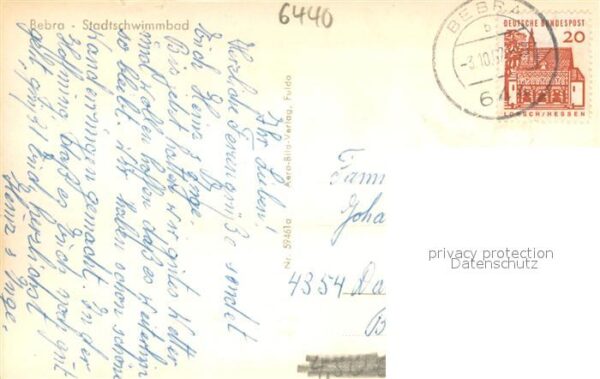 6440
Bebra - Stadtschwimmbad
BEBRA
-3.10.67
64
DEUTSCHE BUNDESPOST
20
LORSCH/HESSEN
Ihr Lieben!
Herzliche Feriengrüße sendet
Euch Heinz u. Inge.
Bis jetzt hatten wir gutes Wetter
und wollen hoffen daß es weiterhin
so bleibt. Wir haben schon schöne
Wanderungen gemacht. In der
Hoffnung daß es Euch noch gut
geht, grüßt Euch herzlichst
Heinz u. Inge.
Nr. 59461a Aero-Bild-Verlag, Fulda
Fami
Joha
4354 Da
privacy protection
Datenschutz